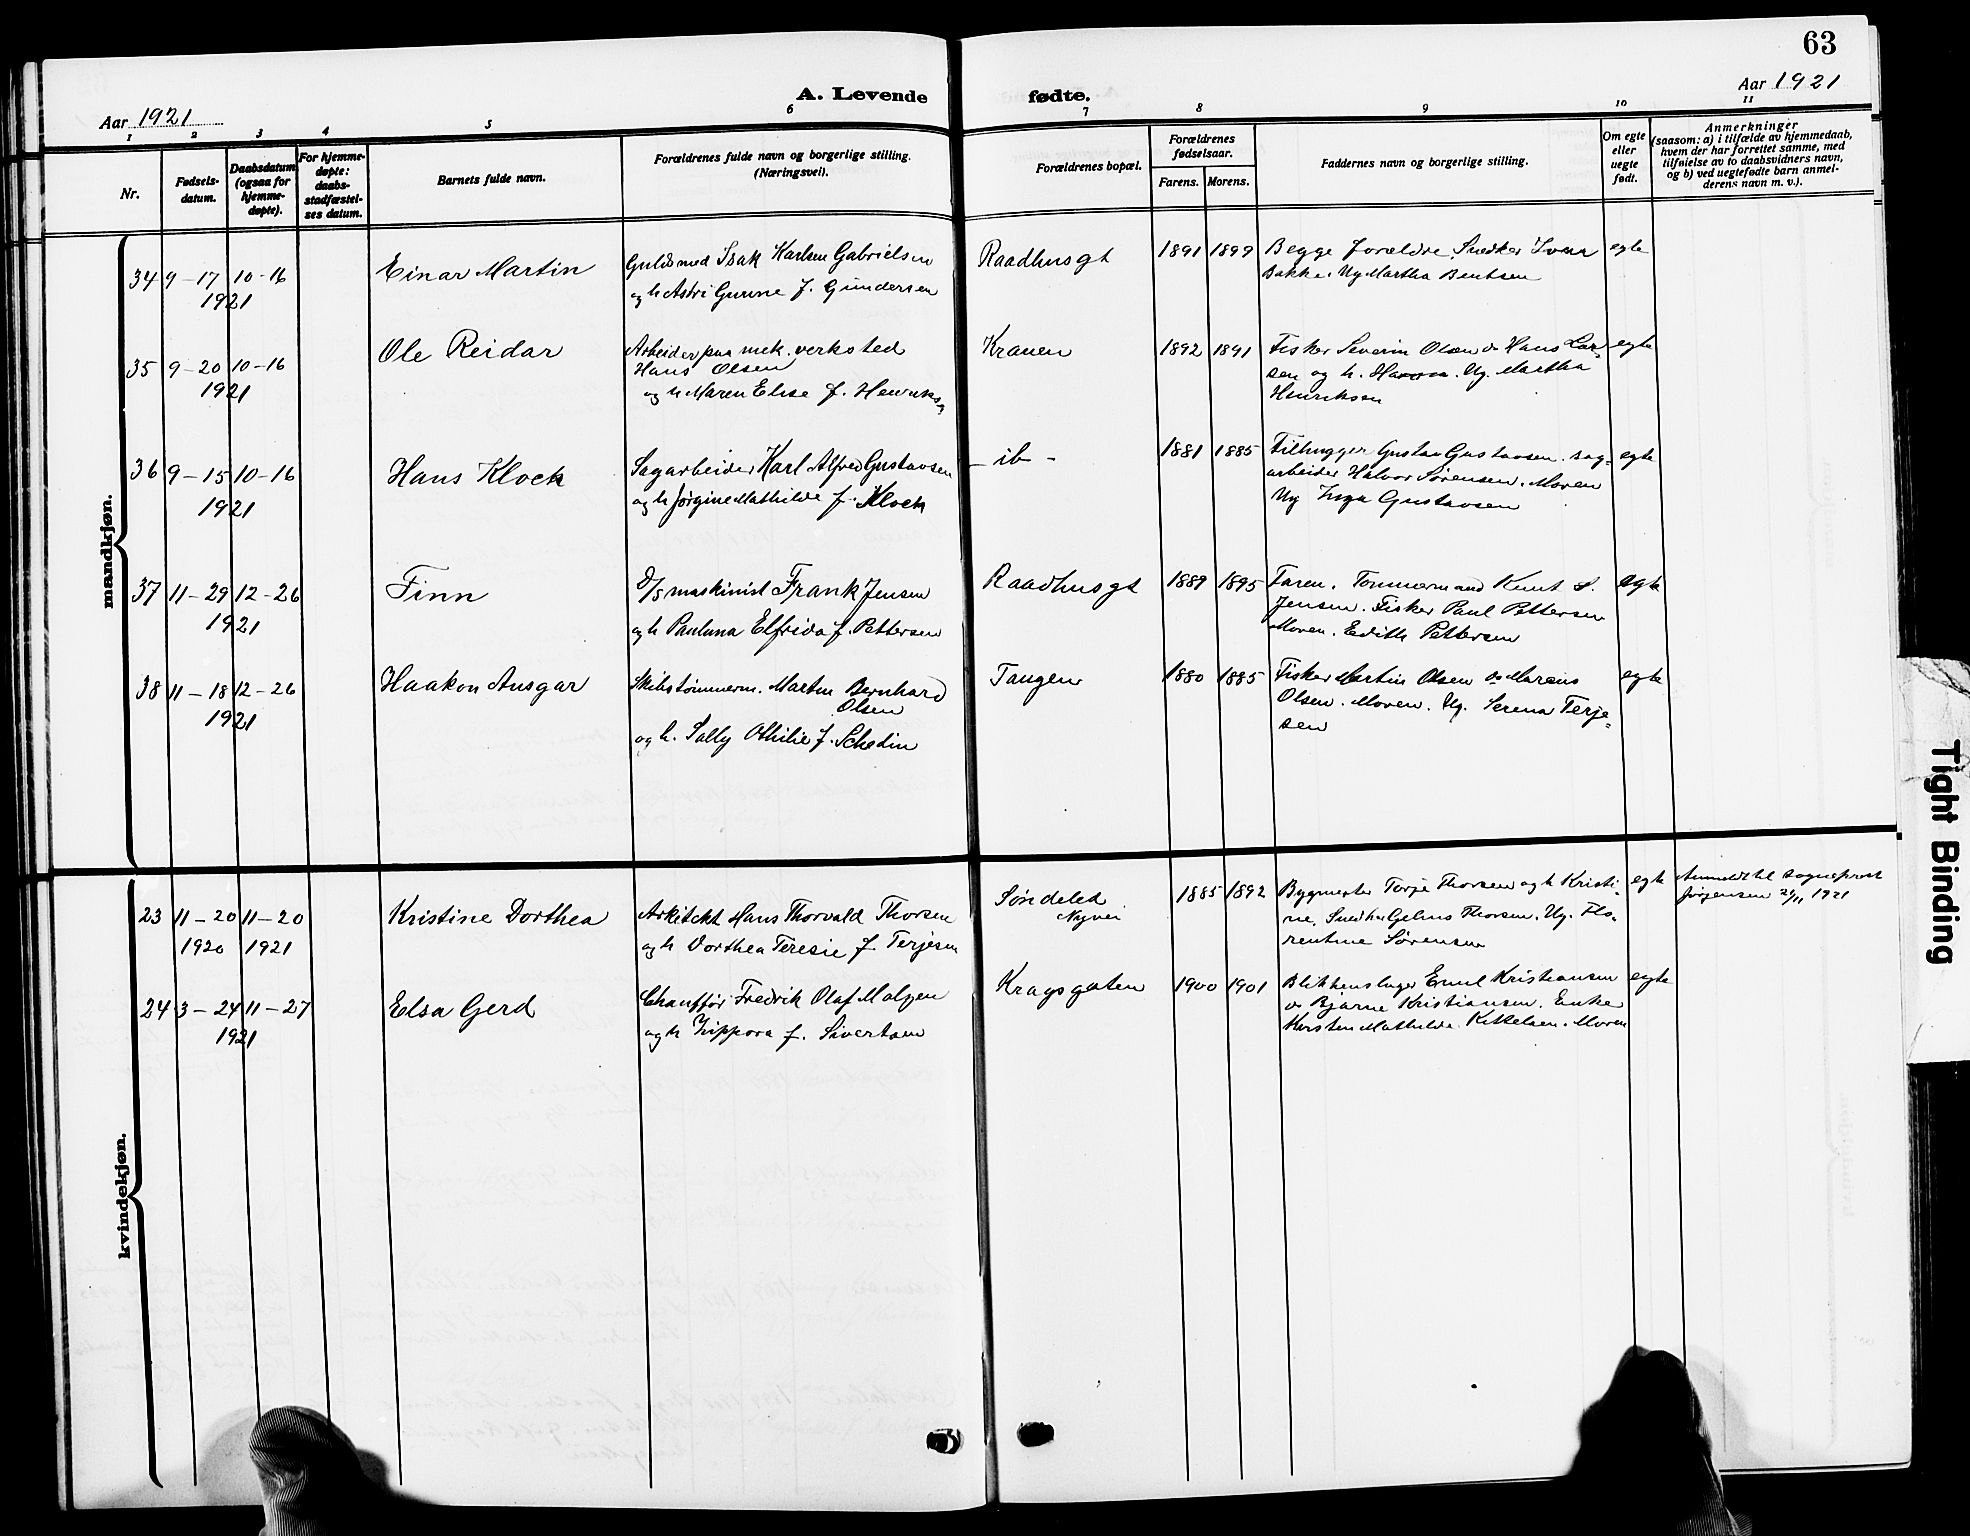 63
Aar 1921
A. Levende
fødte.
Aar 1921
1 2 3 4 5 6 7 8 9 10 11
Nr.
Fødsels-
datum.
Daabsdatum
(ogsaa for
hjemme-
døpte).
For hjemme-
døpte:
daabs-
stadfæstel-
ses datum.
Barnets fulde navn.
Forældrenes fulde navn og borgerlige stilling.
(Næringsvei).
Forældrenes bopæl.
Forældrenes
fødselsaar.
Farens. Morens.
Faddernes navn og borgerlige stilling.
Om egte
eller
uegte
født.
Anmerkninger
(saasom: a) i tilfælde av hjemmedaab,
hvem der har forrettet samme, med
tilføielse av to daabsvidners navn,
og b) ved uegtefødte barn anmel-
derens navn m. v.).
mandkjøn.
34 9-17 10-16
1921
Einar Martin
Guldsmed Isak Karlsen Gabrielsen
og h Astri Gunne f. Gundersen
Raadhusgt
1891 1899
Begge forældre. Snedker Ivar
Bakke. Ug Martha Bentsen
egte
35 9-20 10-16
1921
Ole Reidar
Arbeider paa mek. verksted
Hans Olsen
og h Maren Elise f. Henriks
Kranen
1892 1891
Fisker Severin Olsen & Hans Lar-
sen og h. Hanna. Ug. Martha
Henriksen
egte
36 9-15 10-16
1921
Hans Klock
Sagarbeider Karl Alfred Gustavsen
og h Jørgine Mathilde f. Klock
- ib -
1881 1885
Filhugger Gustav Gustavsen. sag-
arbeider Halvor Sørensen. Moren
Ug Inga Gustavsen
egte
37 11-29 12-26
1921
Finn
D/s maskinist Frank Jensen
og h Paulina Elfrida f. Pettersen
Raadhusgt
1889 1895
Faren. Tømmermand Knut S.
Jensen. Fisker Paul Pettersen
Moren. Edith Pettersen
egte
38 11-18 12-26
1921
Haakon Ansgar
Skibstømmerm. Martin Bernhard
Olsen
og h. Sally Othilie f. Schedin
Tangen
1880 1885
Fisker Martin Olsen & Marius
Olsen. Moren. Ug. Serena Terje-
sen
egte
kvindekjøn.
23 11-20 11-20
1920 1921
Kristine Dorthea
Arkitekt Hans Thorvald Thorsen
og h Dorthea Teresie f Terjesen
Søndeled
Nyvei
1885 1892
Bygmester Terje Thorsen og h Kristi-
ne. Snedker Gelius Thorsen. Ug. Flo-
rentine Sørensen
egte
Anmeldt til sogneprest
Jørgensen 24/11 1921
24 3-24 11-27
1921
Elsa Gerd
Chauffør Fredrik Olaf Malzen
og h Zippora f. Sivertsen
Kragsgaten
1900 1901
Blikkenslager Emil Kristiansen
& Bjarne Kristiansen. Enke
Kirsten Mathilde Kittelsen. Moren
egte
Tight Binding